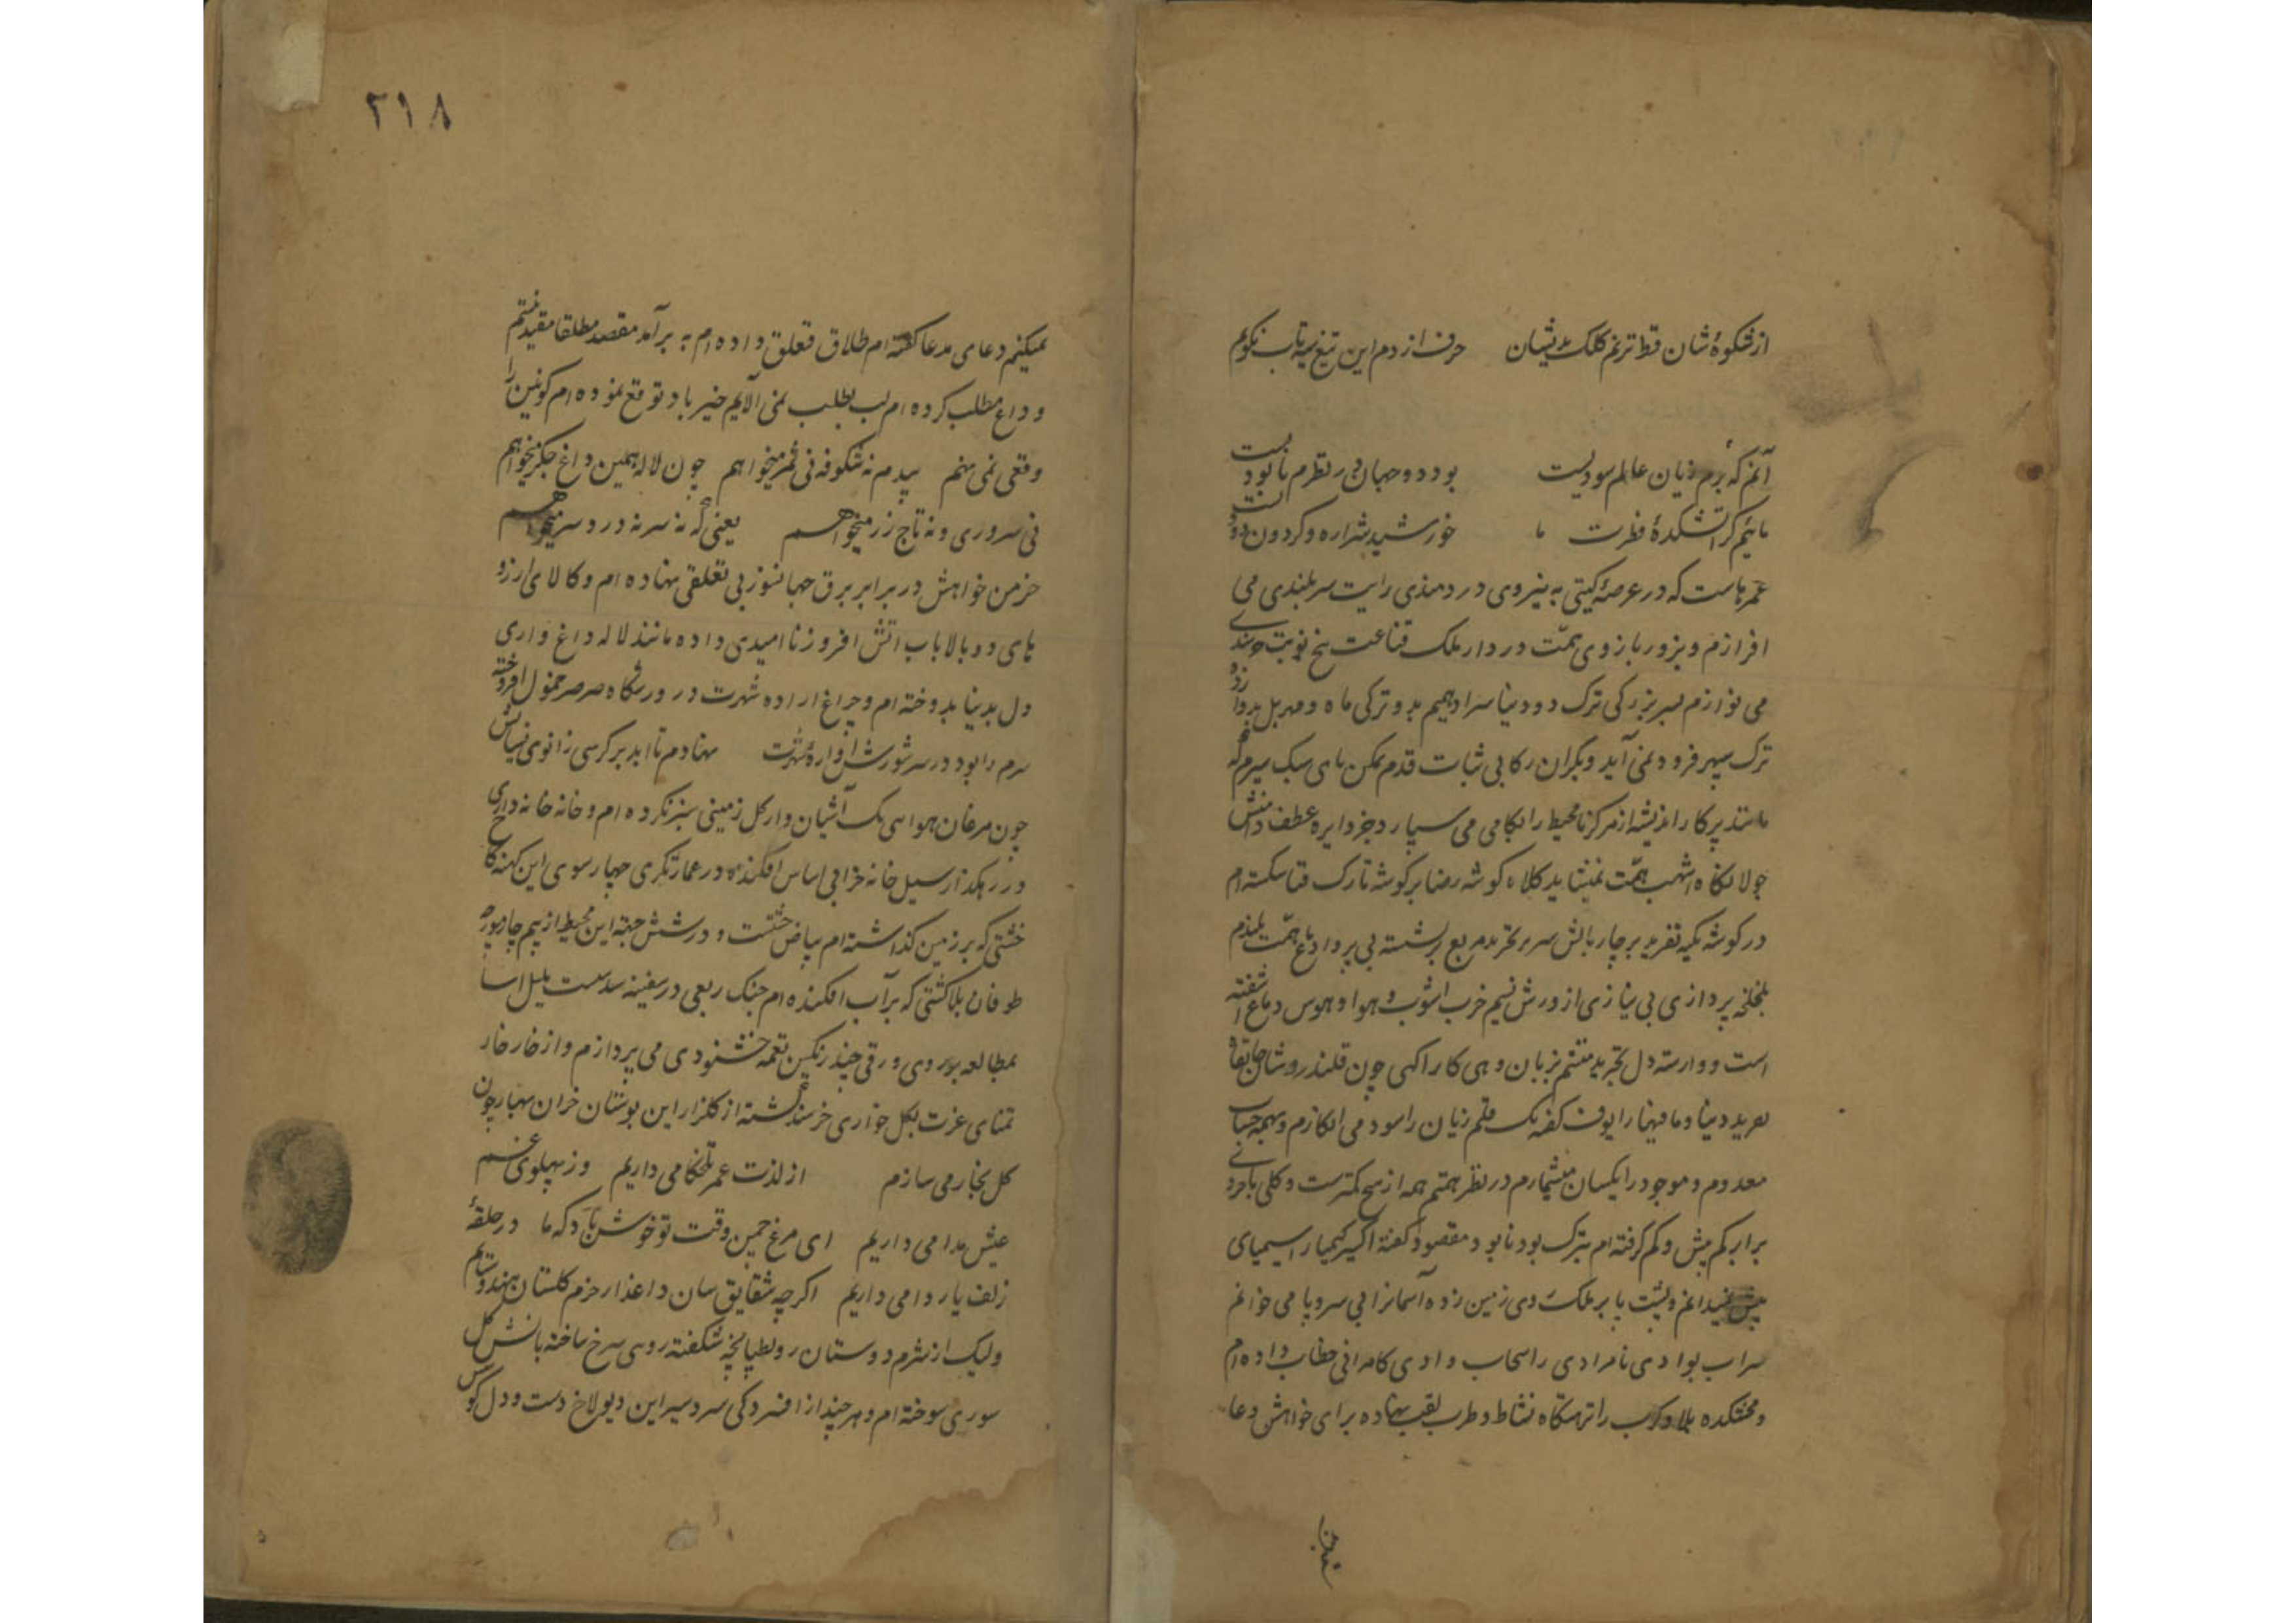 از شکوهٔ شان قط ترنم کلک بدیشان حرف از دم این تیغ سیه تاب نکویم
آنم که برم زیان عالم سودیست بود دو جهان در نظرم نابودیست
مائیم کز آتشکدهٔ فطرت ما خورشید شراره و گردون دودیست
عمرهاست که در عرصهٔ کیتی به نیروی دردمندی رایت سربلندی می
افرازم و بزور بازوی همّت در دار ملک قناعت پنج نوبت خرسندی
می نوازم سر بزرکی ترک دو دنیا سرا دیهیم بدو ترکی ماه و مهر بل بدوازده
ترک سپهر فرود نمی آید و بکران رکابی ثبات قدم تمکن پای سبک سیرم که
مانند پرکار اندیشه از مرکز تا محیط را بکامی می سپارد جز دایره عطف دامنش
جولانکاه اشهب همّت نمیشاید کلاه کوشه رضا بر کوشه تارک فنا شکسته ام
در کوشه تکیه تفرید بر چار بالش سریر تجرید مربع نشسته بی پروا دماغ همّت بلندم
بلخلخه پردازی بی نیازی از ورزش نسیم خرب اشوب هوا و هوس دماغ اشفته
است و وارسته دل تجرید منشم بزبان وهی کار اکهی چون قلندروشان خانقاه
تعرید دنیا و مافیها را یوف کفه یک قلم زیان را سود می انکارم و همه حساب
معدوم و موجود را یکسان میشمارم در نظر همتم همه از هیچ کمترست و کلی با جزوی
برابر کم بیش و کم کرفته ام بترک بود نابود مقصود کفته اکسیر کیمیا را سیمیای
بیش نمیدانم و پشت پا بر ملک دی زمین زده آسمانرا بی سر و پا می خوانم
سراب بوادی نامرادی را سحاب وادی کامرانی خطاب داده ام
و محنتکده بلا و کرب را نزهتکاه نشاط و طرب لقب نهاده برای خواهش دعا
۲۱۸
نمیکنم دعای مدعا کفته ام طلاق تعلق داده ام به برآمد مقصد مطلقا مقید نیستم
وداع مطلب کرده ام لب بطلب نمی آلایم خیر باد توقع نموده ام کونین را
وقعی نمی نهم بیدم نه شکوفه نی ثمر میخواهم چون لاله همین داغ جکر میخواهم
نی سروری و نه تاج زر میخواهم یعنی که نه سر نه درد سر میخواهم
خرمن خواهش در برابر برق جهانسوز بی تعلقی نهاده ام و کالای ارزو
های دو بالا باب اتش افروز ناامیدی داده مانند لاله داغ داری
دل بدنیا بدوخته ام و چراغ اراده شهرت در ورزشکاه صرصر خمول افروخته
سرم را بود در سر شورش اوارهٔ شهرت نهادم تا ابد بر کرسی زانوی نسیانش
چون مرغان هوا سی یک آشیان وار کل زمینی سبز نکرده ام و خانه خانه داری
در رهکذار سیل خانه خرابی اساس افکنده در عمارتکری چهار سوی این کهنه کاخ
خشتی که بر زمین کذاشته ام بیاض خشتست و در شش جهة این محیط از بیم چارموجه
طوفان بلا کشتی که برآب افکنده ام جنک ربعی در سفینه سدست بلبل اسا
بمطالعه بوروی ورقی چند رنکین نغمه خشنودی می پردازم و از خار خار
تمنای عزت بکل خواری خرسند کشته از کلزار این بوستان خزان بهار چون
کل بخار می سازم از لذت عمر تلخکامی داریم وز پهلوی غم
عیش مدامی داریم ای مرغ چمن وقت تو خوش باد که ما در حلقهٔ
زلف یار دامی داریم اکرچه شقایق سان داغدار خرم کلستان هندوستانم
ولیک از شرم دوستان رو بطپانچه شکفته روی سرخ ساخته باتش کل
سوری سوخته ام و هر چند از افسردکی سردسیر این دیولاخ دست و دل کوس